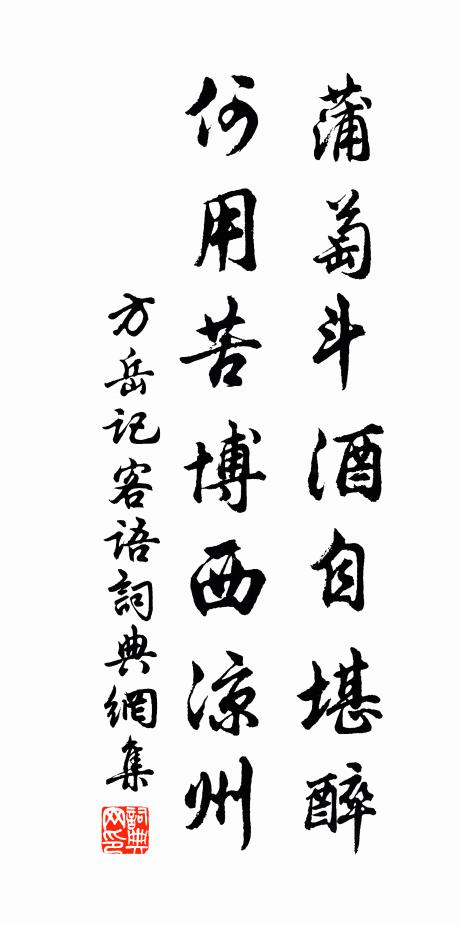 蒲萄斗酒自堪醉
何用苦博西涼州
方岳記客語詞典網集
詞典網印